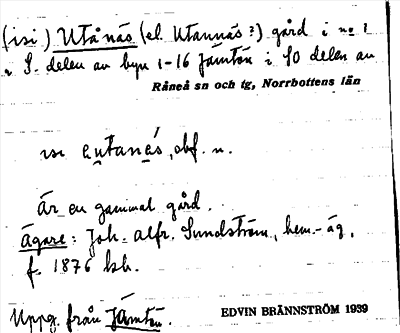 (isi) Utånäs (el. Utannäs?) gård i no 1
i S. delen av byn 1-16 Jämtön i SO delen av
Råneå sn och tg, Norrbottens län
obf. n.
Är en gammal gård.
Ägare: Joh. Alfr. Sundström, hem.-äg.
f. 1876 
Uppg. från Jämtön.
EDVIN BRÄNNSTRÖM 1939